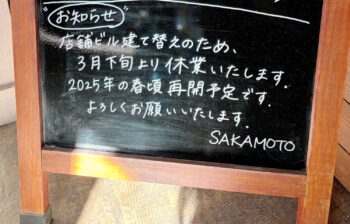 "お知らせ"
店舗ビル建て替えのため、
3月下旬より休業いたします.
2025年の春頃再開予定です.
よろしくお願いいたします.
SAKAMOTO